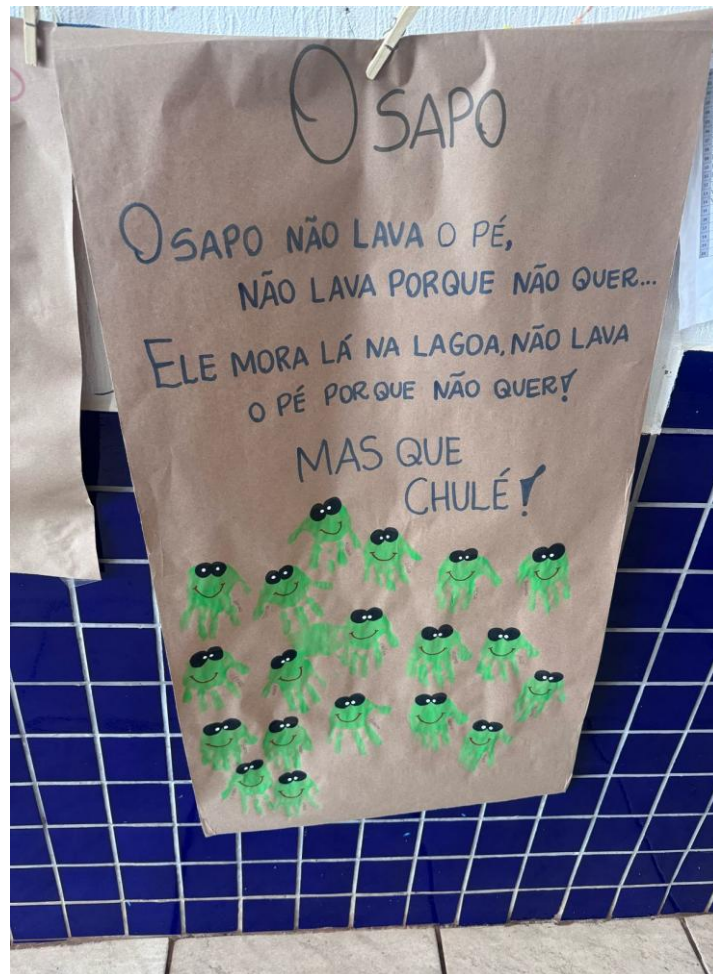 O SAPO
O SAPO NÃO LAVA O PÉ,
NÃO LAVA PORQUE NÃO QUER...
ELE MORA LÁ NA LAGOA, NÃO LAVA
O PÉ PORQUE NÃO QUER!
MAS QUE
CHULÉ!